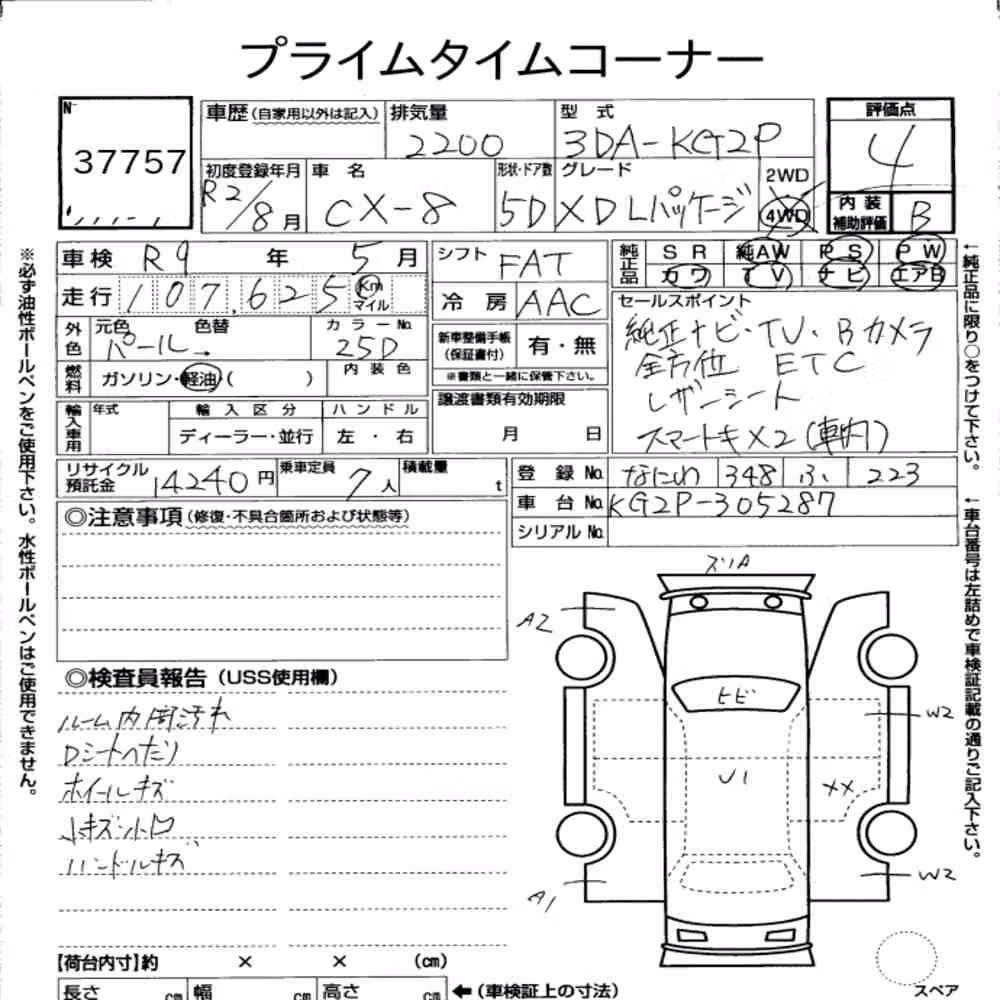 プライムタイムコーナー
No 37757
車歴(自家用以外は記入) 排気量 2200 型式 3DA-KG2P
評価点 4
初度登録年月 R2/8月 車名 CX-8 形状・ドア数 5D グレード XD Lパッケージ 2WD 4WD
内装補助評価 B
車検 R9年 5月 シフト FAT
純正品 SR 純AW PS PW
カワ TV ナビ エアB
走行 107,625 Km マイル 冷房 AAC
セールスポイント
純正ナビ・TV・Bカメラ
全方位 ETC
レザーシート
スマートキ×2(車内)
外色 元色 パール 色替 → カラーNo. 25D
新車整備手帳(保証書付) 有・無
※書類と一緒に保管下さい。
燃料 ガソリン・軽油・( ) 内装色
譲渡書類有効期限 月 日
輸入車用 年式 輸入区分 ハンドル
ディーラー・並行 左・右
リサイクル預託金 14240円 乗車定員 7人 積載量 t
登録No. なにわ 348 ふ 223
車台No. KG2P-305287
シリアルNo.
◎注意事項(修復・不具合箇所および状態等)
◎検査員報告(USS使用欄)
ルーム内周汚れ
Dシートへたり
ホイールキズ
小キズ小凹
ハンドルキズ
スリA
A2
ヒビ
W2
U1
XX
W2
A1
【荷台内寸】約 × × (cm)
長さ cm 幅 cm 高さ cm ←(車検証上の寸法)
スペア
※必ず油性ボールペンをご使用下さい。水性ボールペンはご使用できません。
←純正品に限り○をつけて下さい。
←車台番号は左詰めで車検証記載の通りご記入下さい。